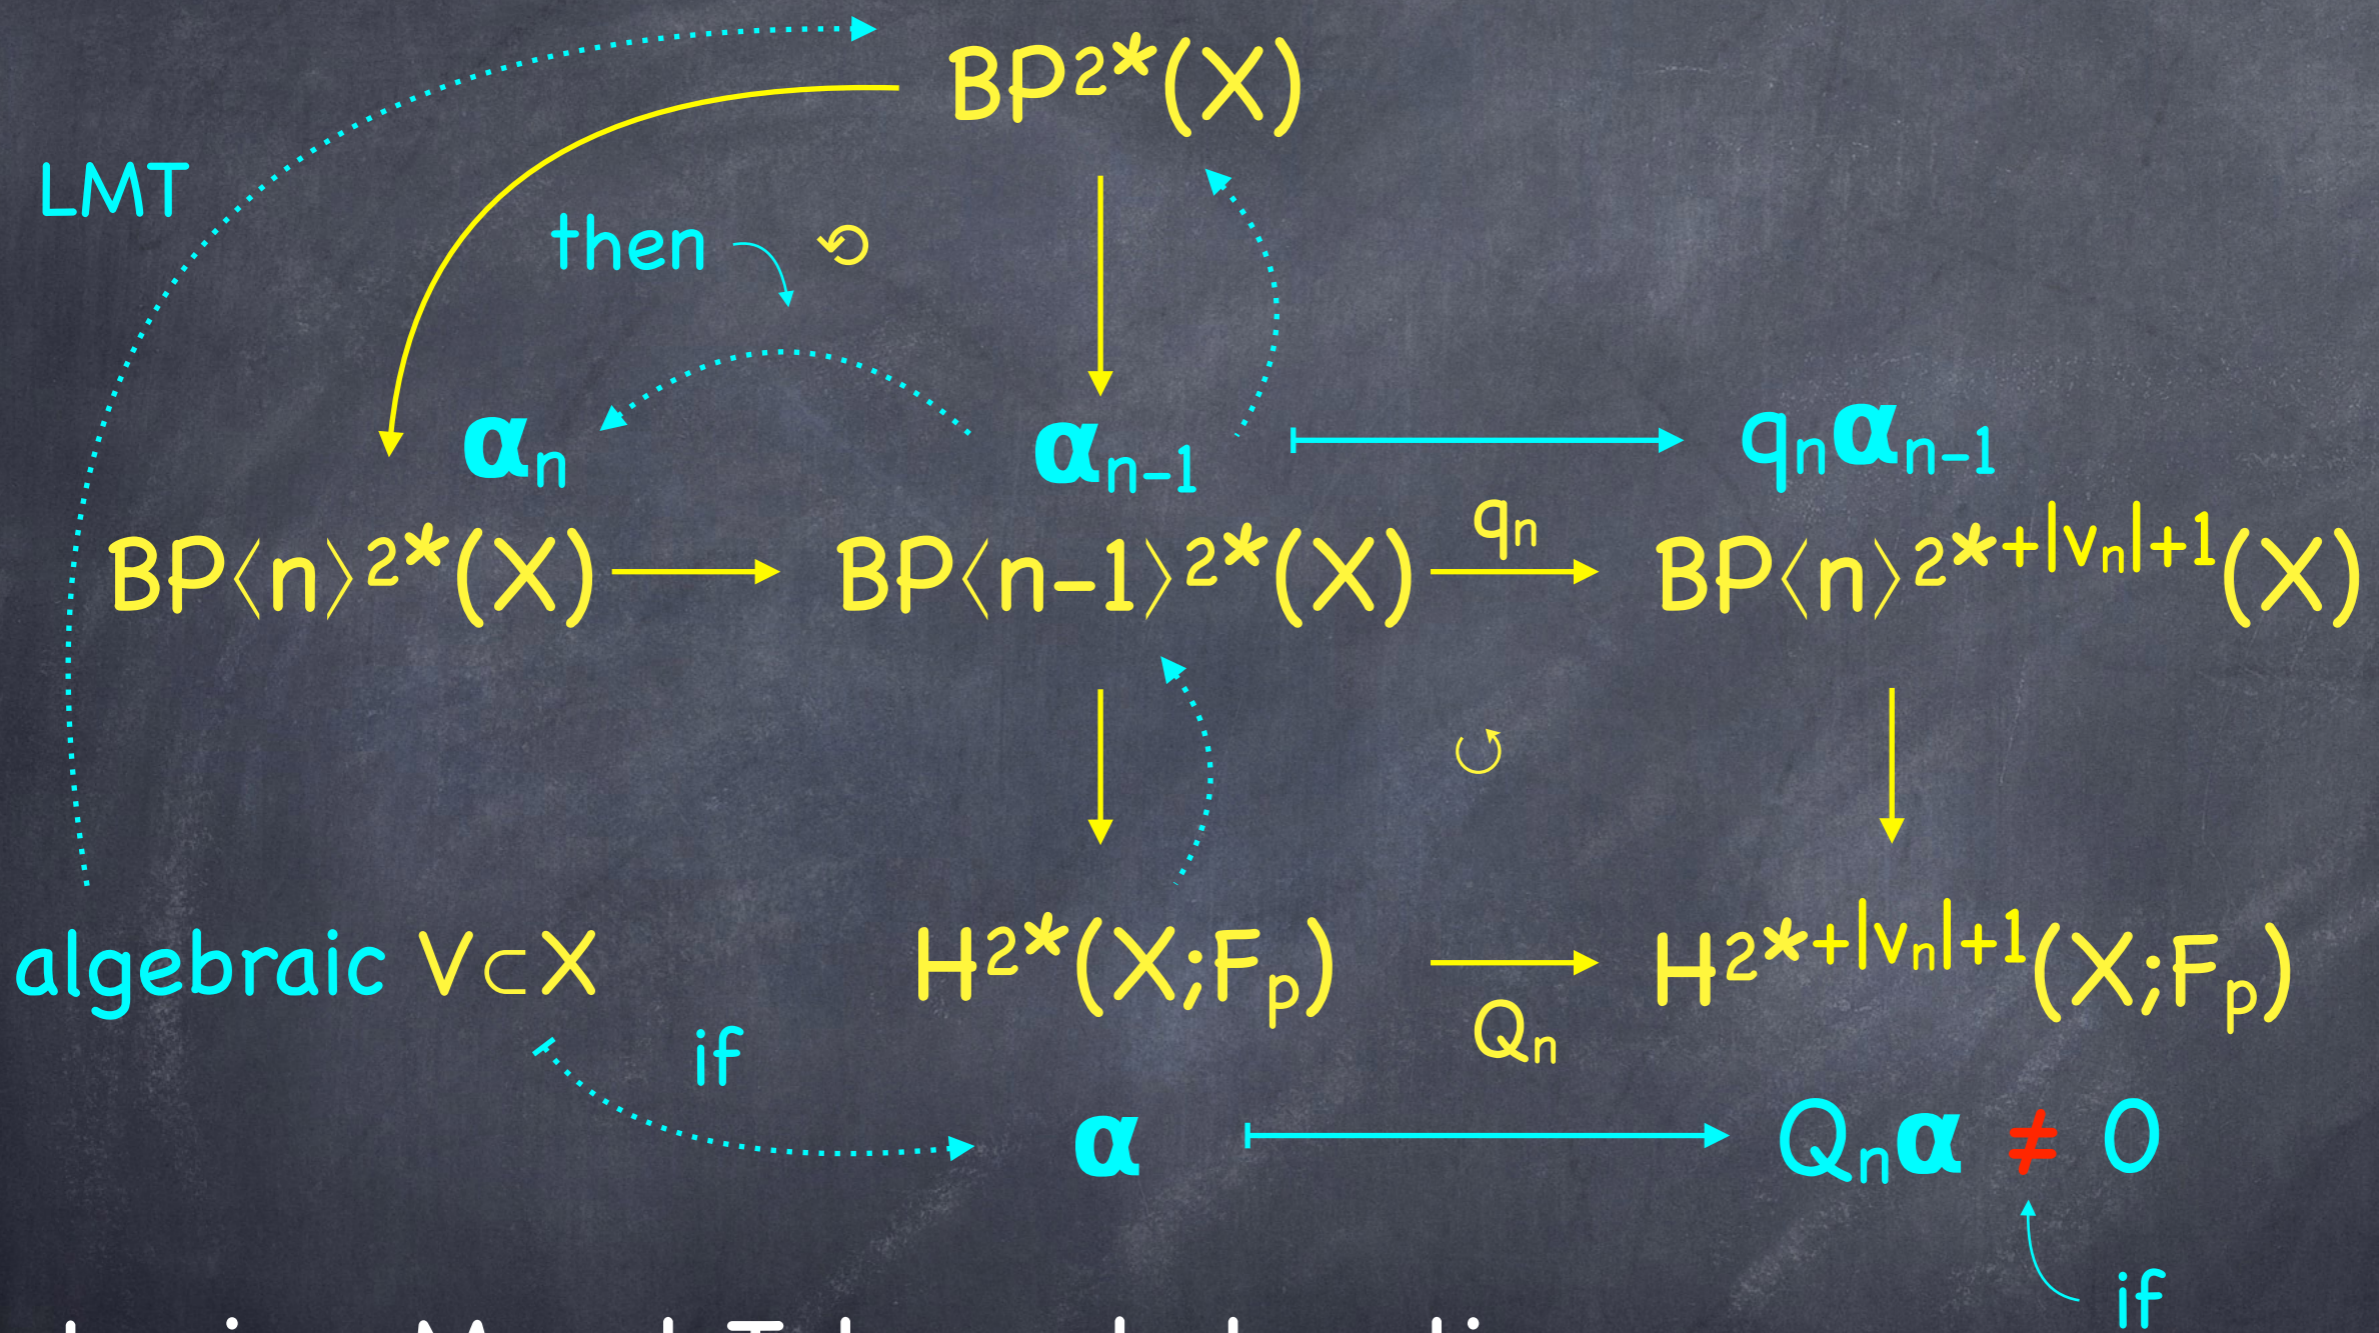 BP²*(X)
LMT
then ⟲
αₙ αₙ₋₁ qₙαₙ₋₁
qₙ
BP⟨n⟩²*(X) BP⟨n-1⟩²*(X) BP⟨n⟩²*⁺|ᵛₙ|⁺¹(X)
↺
algebraic V⊂X H²*(X;Fₚ) H²*⁺|ᵛₙ|⁺¹(X;Fₚ)
Qₙ
if
α Qₙα ≠ 0
if